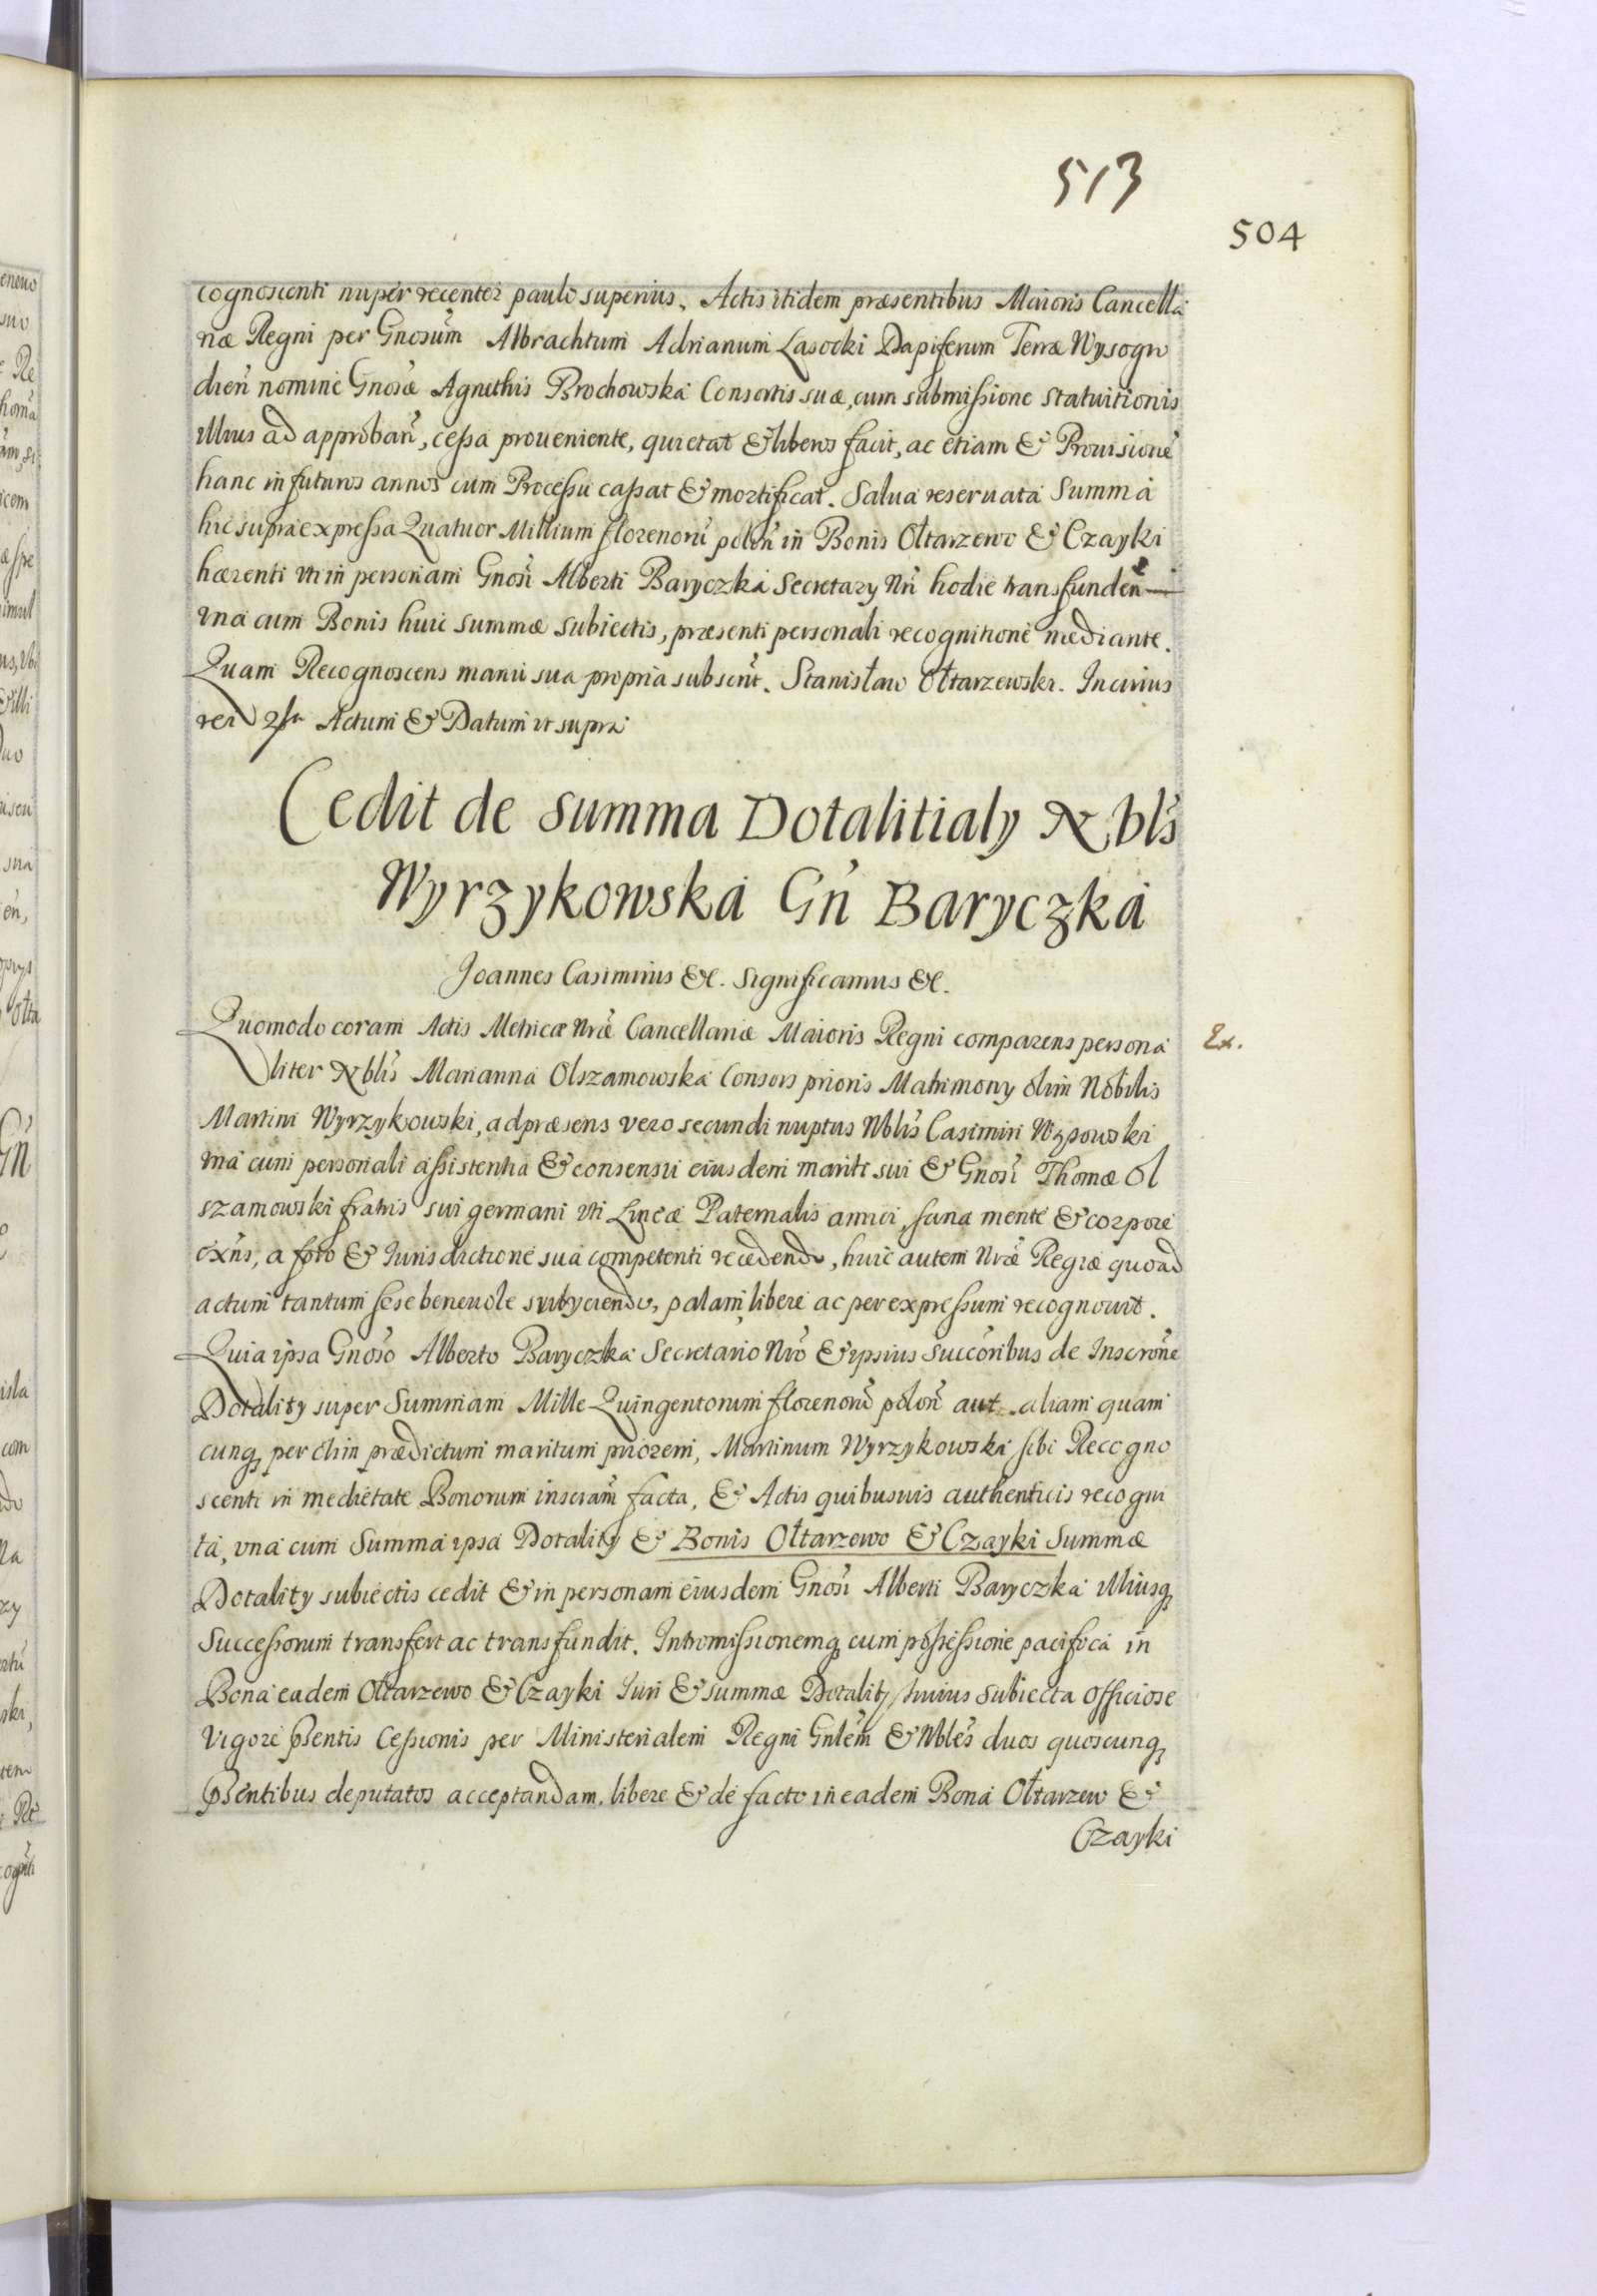 513
504
cognoscenti nuper recenter paulo superius. Actis itidem præsentibus Maioris Cancella
riæ Regni per Gnosum Albrachtum Adrianum Lasocki Dapiferum Terræ Wysogro
dien nomine Gnosæ Agnethis Brochowska Consortis suæ, cum submissione statuitionis
illius ad approban, cessa proueniente, quietat & liberos facit, ac etiam & Prouisione
hanc in futuros annos cum Processu cassat & mortificat. Salua reseruata Summa
hic supra expressa Quatuor Millium florenoru polon in Bonis Ołtarzewo & Czayki
hærenti uti in personam Gnosi Alberti Baryczka Secretary Nri hodie transfunden
una cum Bonis huic summæ subiectis, præsenti personali recognitione mediante.
Quam Recognoscens manu sua propria subscrit. Stanisław Ołtarzewski. In cuius
rei Actum & Datum ut supra
Cedit de Summa Dotalitialy Nblis
Wyrzykowska Gn Baryczka
Joannes Casimirus &c. Significamus &c.
Quomodo coram Actis Metricæ Nræ Cancellariæ Maioris Regni comparens persona
Ex.
liter Nblis Marianna Olszamowska Consors prioris Matrimony olim Nobilis
Martini Wyrzykowski, ad præsens vero secundi nuptus Nblis Casimiri
una cum personali assistentia & consensu eiusdem mariti sui & Gnosi Thomæ Ol
szamowski fratris sui germani uti Lineæ Paternalis amici, sana mente & corpore
exns, a foro & Iurisdictione sua competenti recedendo, huic autem Nræ Regiæ quoad
actum tantum sese beneuole subyciendo, palam, libere ac per expressum recognouit.
Quia ipsa Gnoso Alberto Baryczka Secretario Nro & ipsius succoribus de Inscrone
Dotality super Summam Mille Quingentorum florenoru polon aut aliam quam
cunq, per olim prædictum maritum priorem, Martinum Wyrzykowski sibi Recogno
scenti in medietate Bonorum inscram facta, & Actis quibusuis authenticis recogni
ta, una cum Summa ipsa Dotality & Bonis Ołtarzewo & Czayki Summæ
Dotality subiectis cedit & in personam eiusdem Gnosi Alberti Baryczka illiusq
Successorum transfert ac transfundit. Intromissionemq cum possessione pacifica in
Bona eadem Ołtarzewo & Czayki Iuri & summæ Dotality huius subiecta officiose
vigore psentis Cessionis per Ministerialem Regni Gnlem & Nbles duos quoscunq
psentibus deputatos acceptandam, libere & de facto in eadem Bona Ołtarzew &
Czayki